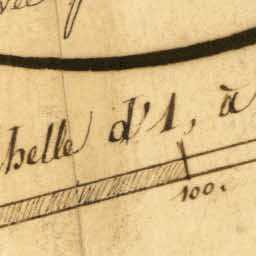 helle d'1, à
100.